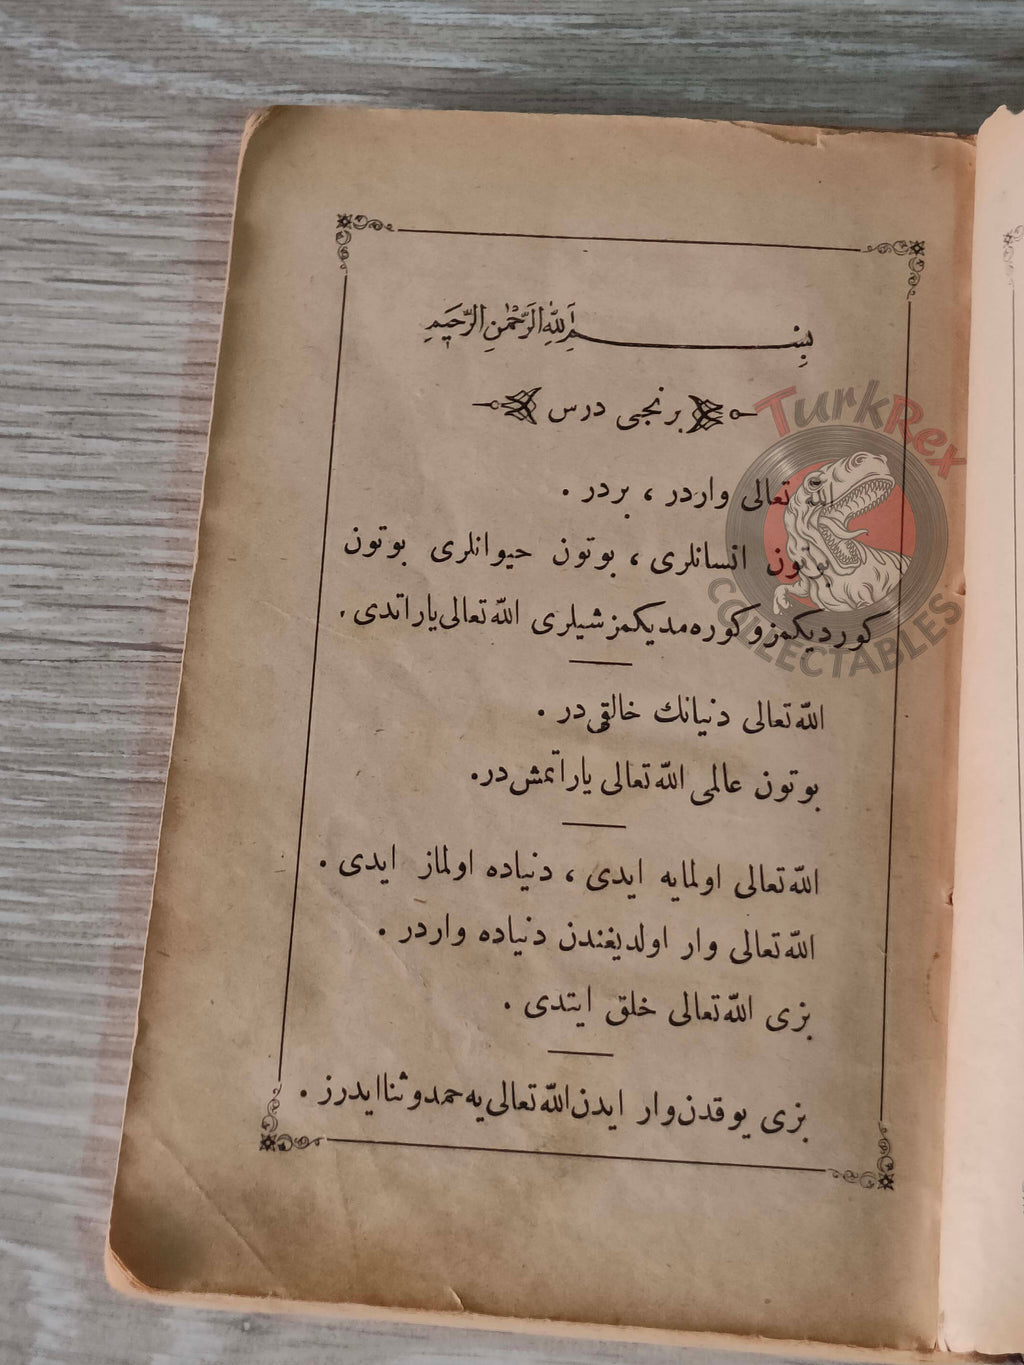 بِسْمِ اللّٰهِ الرَّحْمٰنِ الرَّحِيمِ
برنجی درس
اللّه تعالی واردر ، بردر .
بوتون انسانلری ، بوتون حیوانلری بوتون
كوردیكمز و كوره‌مدیكمز شیلری اللّه تعالی یاراتدی .
اللّه تعالی دنیانك خالقی‌در .
بوتون عالمی اللّه تعالی یاراتمش‌در.
اللّه تعالی اولمایه ایدی ، دنیاده اولماز ایدی .
اللّه تعالی وار اولدیغندن دنیاده واردر .
بزی اللّه تعالی خلق ایتدی .
بزی یوقدن وار ایدن اللّه تعالی‌یه حمد و ثنا ایدرز .
TurkRex
COLLECTABLES